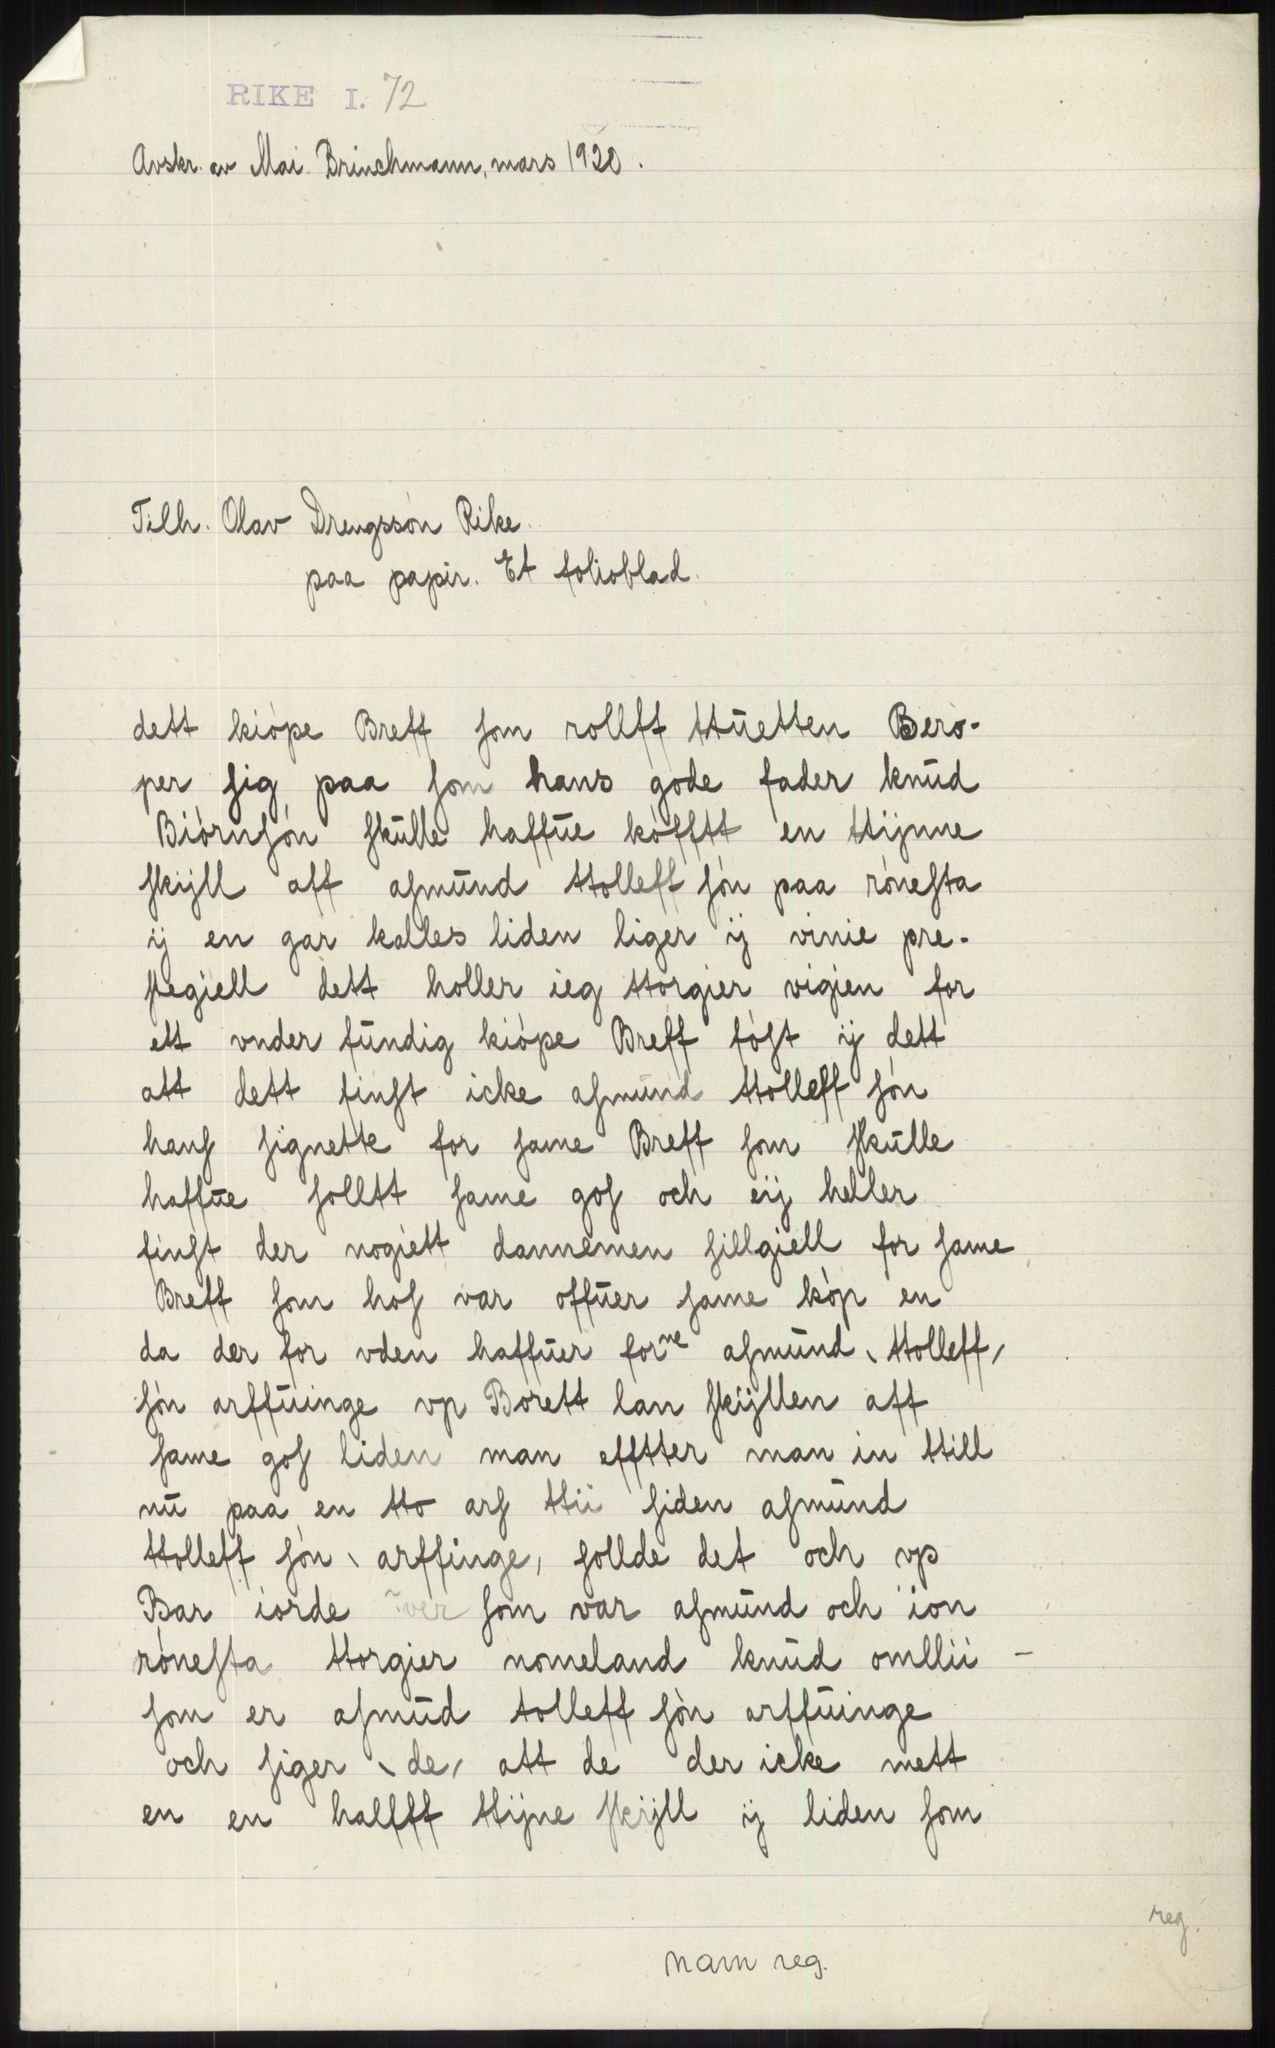 RIKE I. 72
Avskr. av Mai Brinchmann, mars 1920.
Tilh. Olav Drengsson Rike.
paa papir. Et folioblad.
dett kiópe Breff ſom rollff ttūetten Bero-
per ſig paa ſom hans gode fader knūd
Biórnſón ſkūlle haffūe kófftt en ttijnne
ſkijll aff aſmūnd ttolleff ſón paa róneſta
ij en gar kalles liden liger ij vinie pre-
ſtegiell dett holler ieg ttorgier vigien for
ett vnder fūndig kiópe Breff fóſt ij dett
att dett finſt icke aſmūnd ttolleff ſón
hanſ ſignette for ſame Breff ſom ſkūlle
haffūe ſolltt ſame goſ och eij heller
finſt der nogiett dannemen ſillgiell for ſame
Breff ſom hoſ var offūer ſame kóp en
da der for vden haffūer forne aſmūnd ttolleff,
ſón arffūinge vp Borett lan ſkijllen aff
ſame goſ liden man efftter man in ttill
nū paa en tto arſ ttii ſiden aſmūnd
ttolleff ſón arffinge, ſollde det och vp
Bar iorde ver ſom var aſmūnd och ion
róneſta ttorgier nomeland knūd omllii -
ſom er aſmūd tolleff ſón arffūinge
och ſiger de, att de der icke mett
en en halfff ttijne ſkijll ij liden ſom
reg.
nam reg.